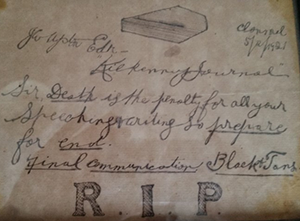 Clonmel
5/2/1921
To
Kilkenny Journal
Sir Death is the penalty for all your
Speeching writing So prepare
for end.
final communication Black & Tans
R.I.P.